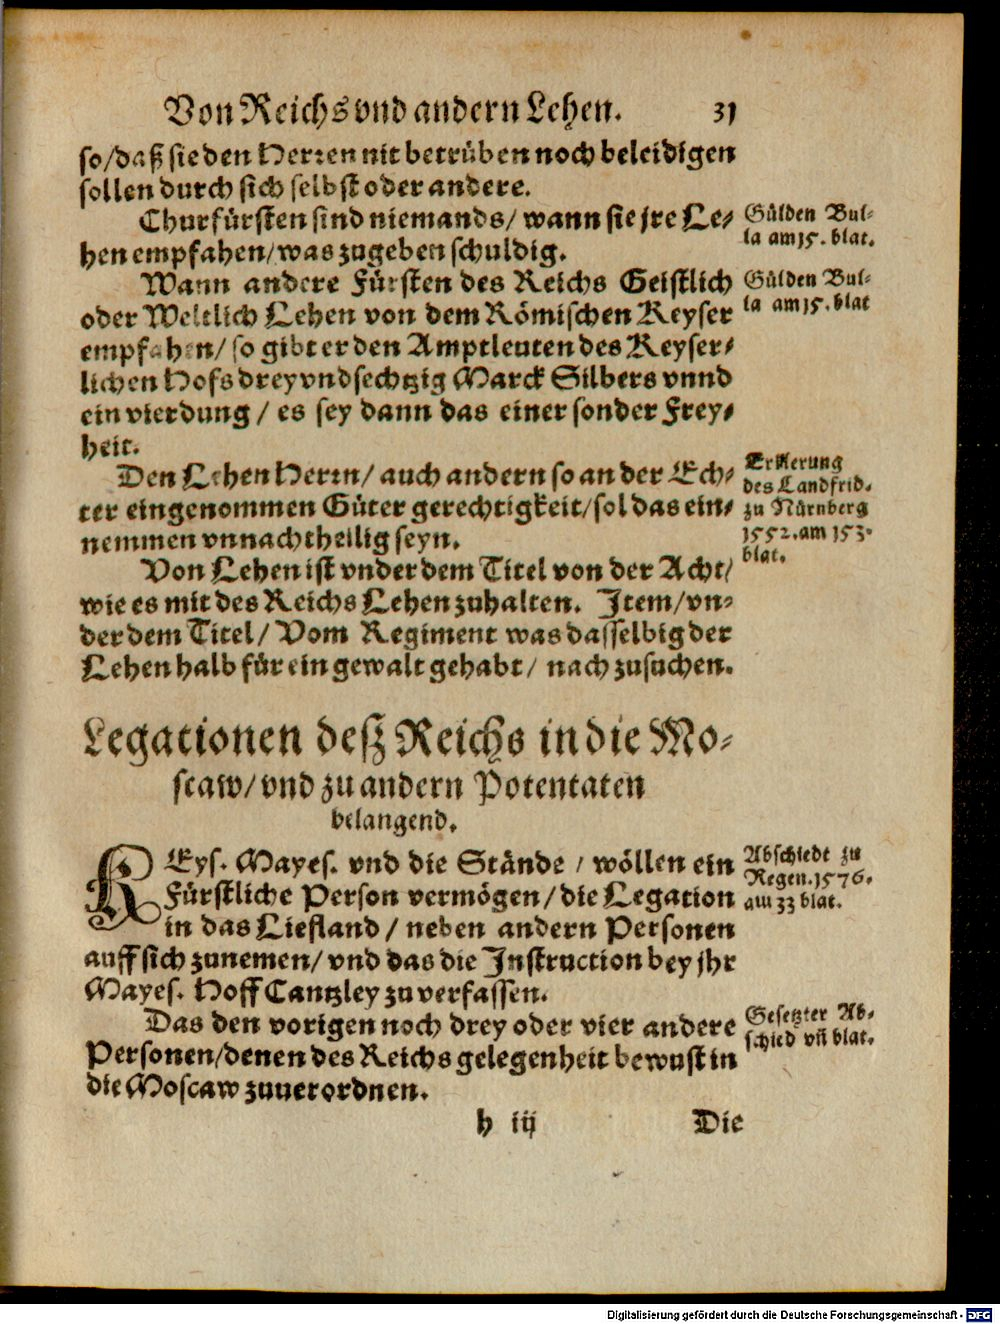 Von Reichs vnd andern Lehen. 31
so/daß sie den Herren nit betrüben noch beleidigen
sollen durch sich selbst oder andere.
Churfürsten sind niemands/ wann sie jre Le-
hen empfahen/was zugeben schuldig.
Gülden Bul-
la am 15. blat.
Wann andere Fürsten des Reichs Geistlich
oder Weltlich Lehen von dem Römischen Keyser
empfahen/ so gibt er den Amptleuten des Keyser-
lichen Hofs drey vnd sechtzig Marck Silbers vnnd
ein vierdung / es sey dann das einer sonder Frey-
heit.
Gülden Bul-
la am 15. blat
Den Lehen Herrn/ auch andern so an der Ech-
ter eingenommen Güter gerechtigkeit/sol das ein-
nemmen vnnachtheilig seyn.
Erklerung
des Landfrid.
zu Nürnberg
1552. am 153.
blat.
Von Lehen ist vnder dem Titel von der Acht/
wie es mit des Reichs Lehen zuhalten. Item/vn-
der dem Titel/ Vom Regiment was dasselbig der
Lehen halb für ein gewalt gehabt/ nach zusuchen.
Legationen deß Reichs in die Mo-
scaw/vnd zu andern Potentaten
belangend.
KEys. Mayes. vnd die Stände / wöllen ein
Fürstliche Person vermögen/ die Legation
in das Liefland/ neben andern Personen
auff sich zunemen/ vnd das die Instruction bey jhr
Mayes. Hoff Cantzley zu verfassen.
Abschiedt zu
Regen. 1576.
am 33 blat.
Das den vorigen noch drey oder vier andere
Personen/denen des Reichs gelegenheit bewust in
die Moscaw zuuerordnen.
Gesetzter Ab-
schied vñ blat.
h iij Die
Digitalisierung gefördert durch die Deutsche Forschungsgemeinschaft - DFG